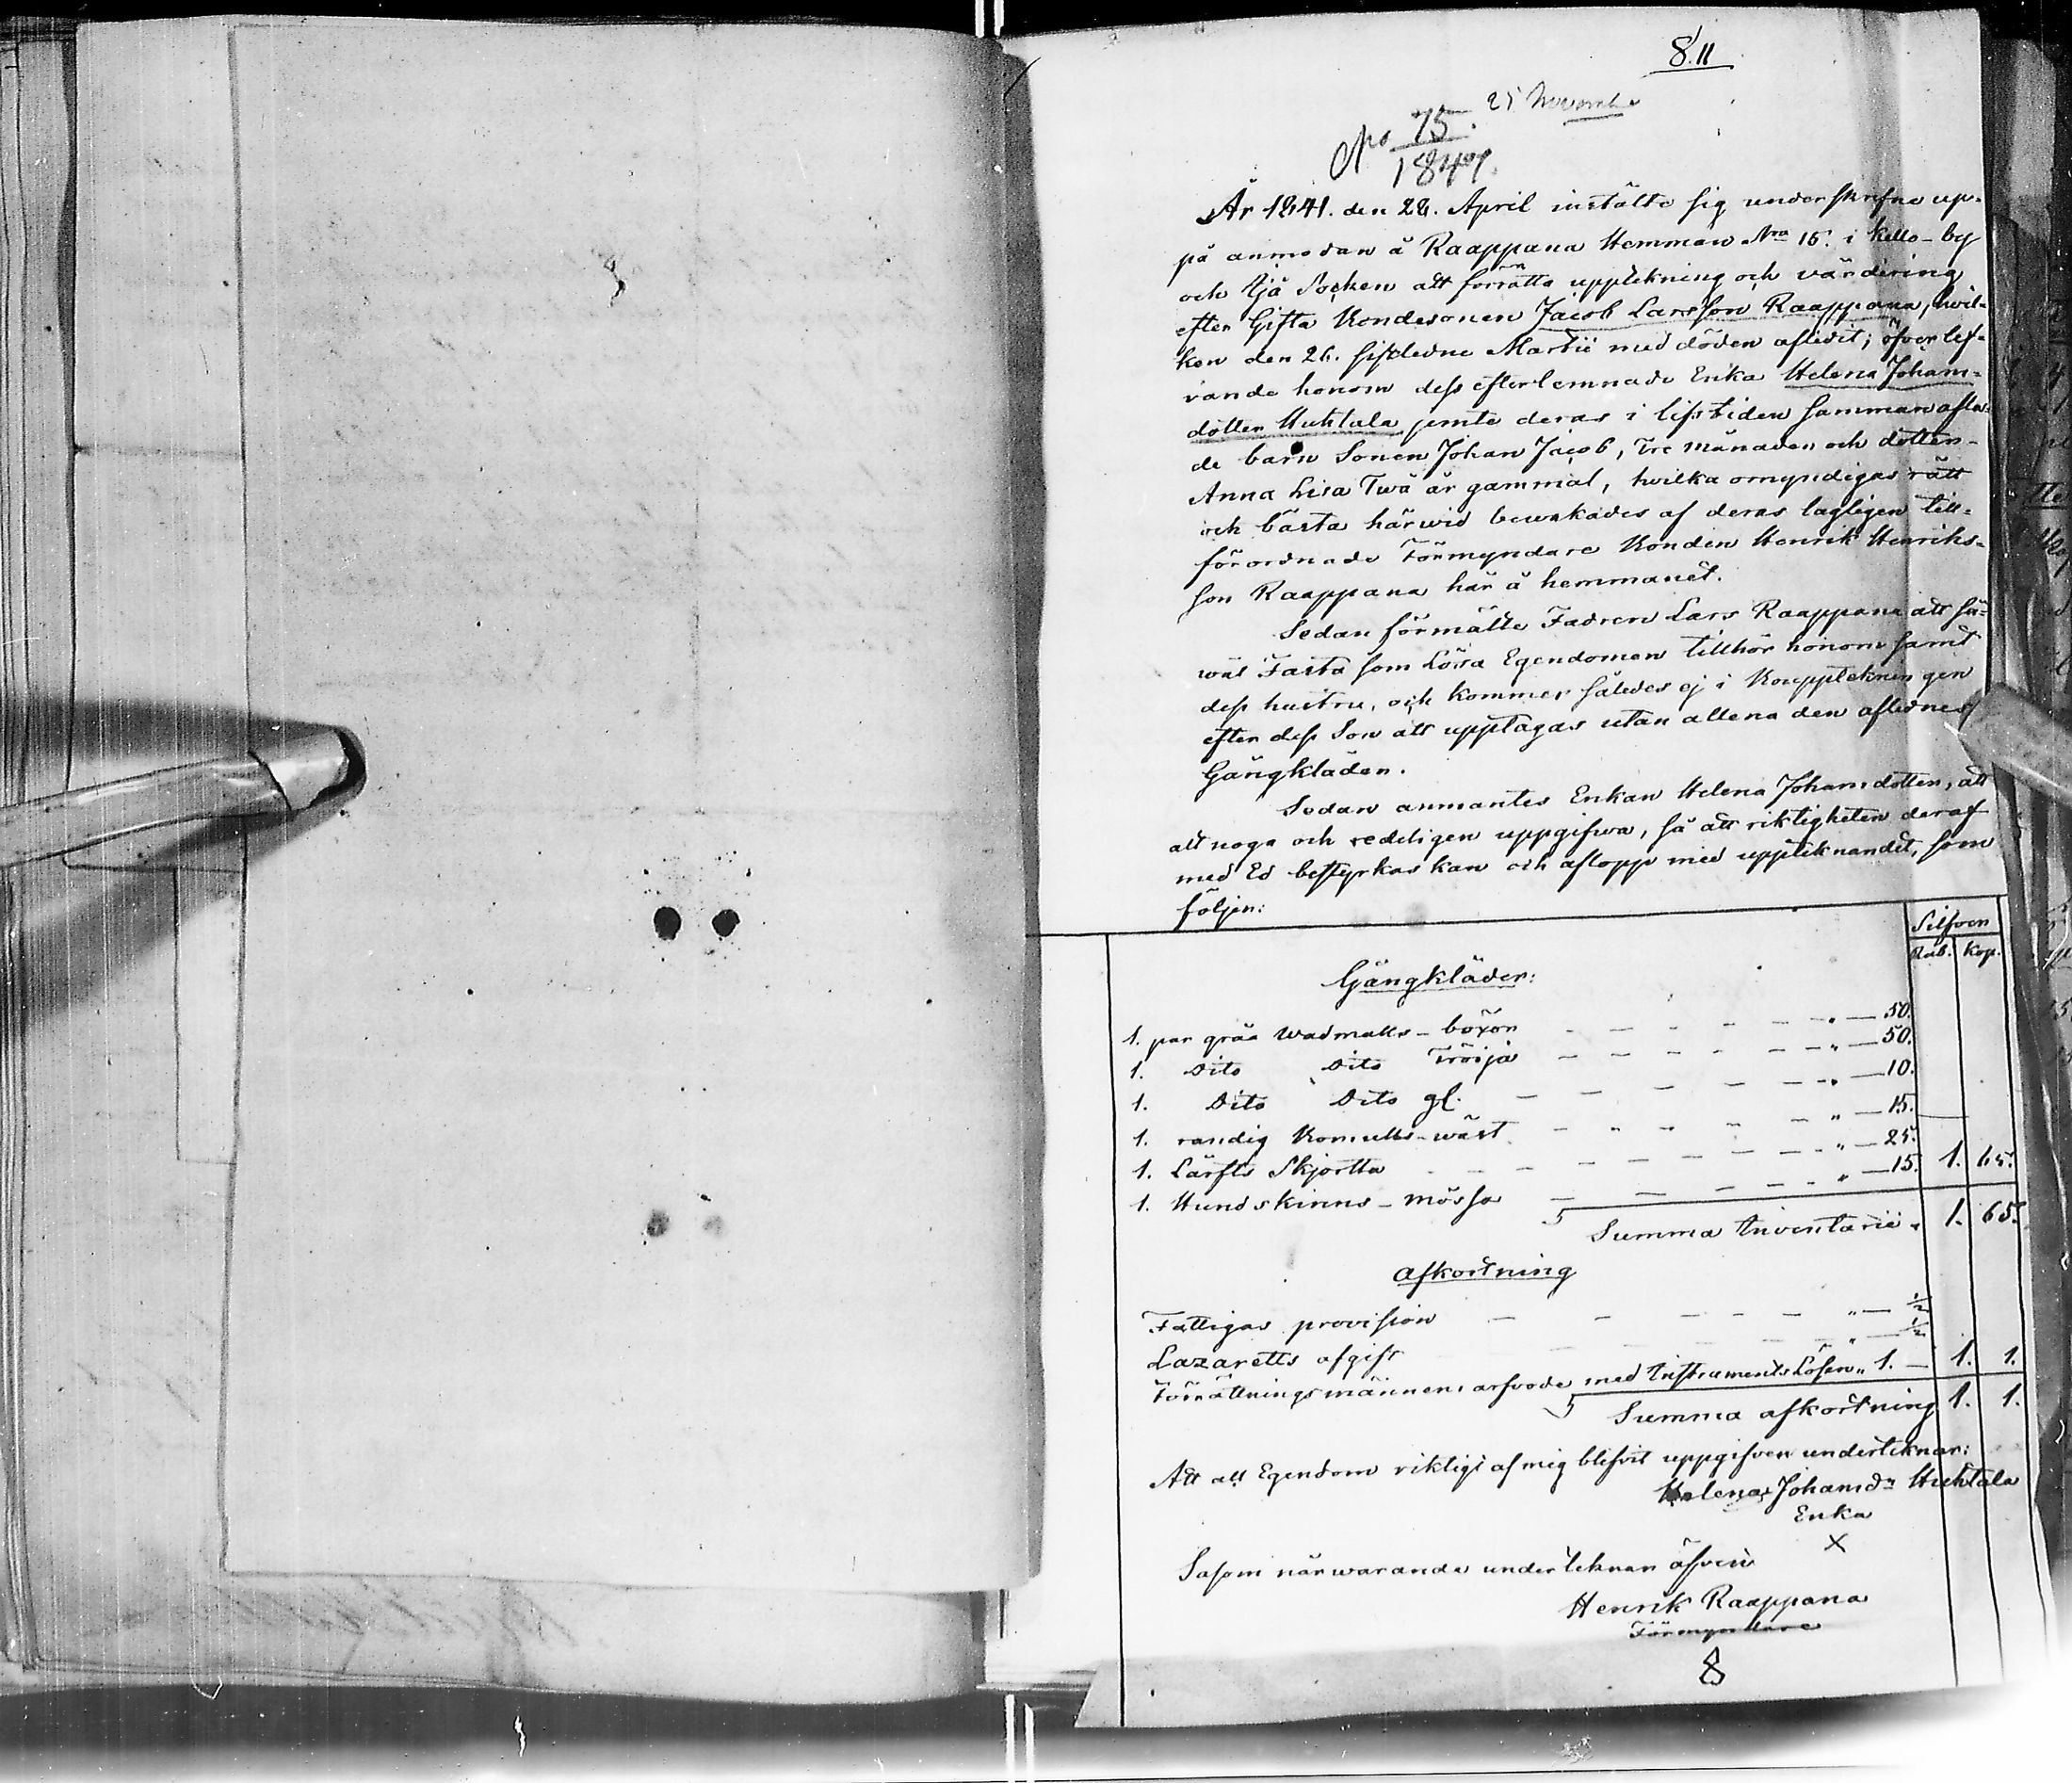 8.11
25 Novembe
No 75.
1841.
År 1841. den 28. April instälte sig underskrefne up-
på anmodan å Raappana Hemman Nro 15. i Kello-by
och Ijå Socken att förrätta uppteckning och värdering
efter Gifta Bondesonen Jacob Larsson Raappana, hvil-
ken den 26. sistledne Martii med döden aflidit; öfverlef-
vande honom dess efterlemnade Enka Helena Johans-
dotter Huhtala jemte deras i lifstiden sammanafla-
de barn Sonen Johan Jacob, Tre månader och dotter-
Anna Lisa Twå år gammal, hvilka omyndigas rätt
och bästa härwid bewakades af deras lagligen till-
förordnade Förmyndare Bonden Henrik Henriks-
son Raappana här å hemmanet.
Sedan förmälte Fadren Lars Raappana att så-
wäl Fasta som Lösa Egendomen tillhör honom samt
dess hustru, och kommer således ej i Boupptekningen
efter dess Son att upptagas utan allena den aflidnes
Gångkläder.
Sedan anmantes Enkan Helena Johansdotter, att
alt noga och redeligen uppgifwa, så att riktigheten deraf
med Ed bestyrkas kan och aflopp med uppteknandet, som
följer:
Silfver
Rub. Kop.
Gångkläder:
1. par gråa Wadmalls-böxor - - - - - " — 50.
1. dito dito Tröija - - - - - " — 50.
1. dito dito gl. - - - - - " — 10.
1. randig Bomulls-wäst - - - - - " — 15.
1. Lärfts Skjortta - - - - - " — 25.
1. Hundskinns-mössa - - - - - " — 15. 1. 65.
Summa Inventarii. 1. 65.
Afkortning
Fattigas provision - - - - - " — 1/2
Lazaretts afgift - - - - - " — 1/2
Förrättningsmännens arfvode med Instruments Lösen " 1. — 1. 1.
Summa afkortning 1. 1.
Att all Egendom riktigt af mig blifvit uppgifven underteknar:
Helena Johansdr Huhtala
Enka
X
Såsom närwarande underteknar äfven
Henrik Raappana
Förmyndare
8